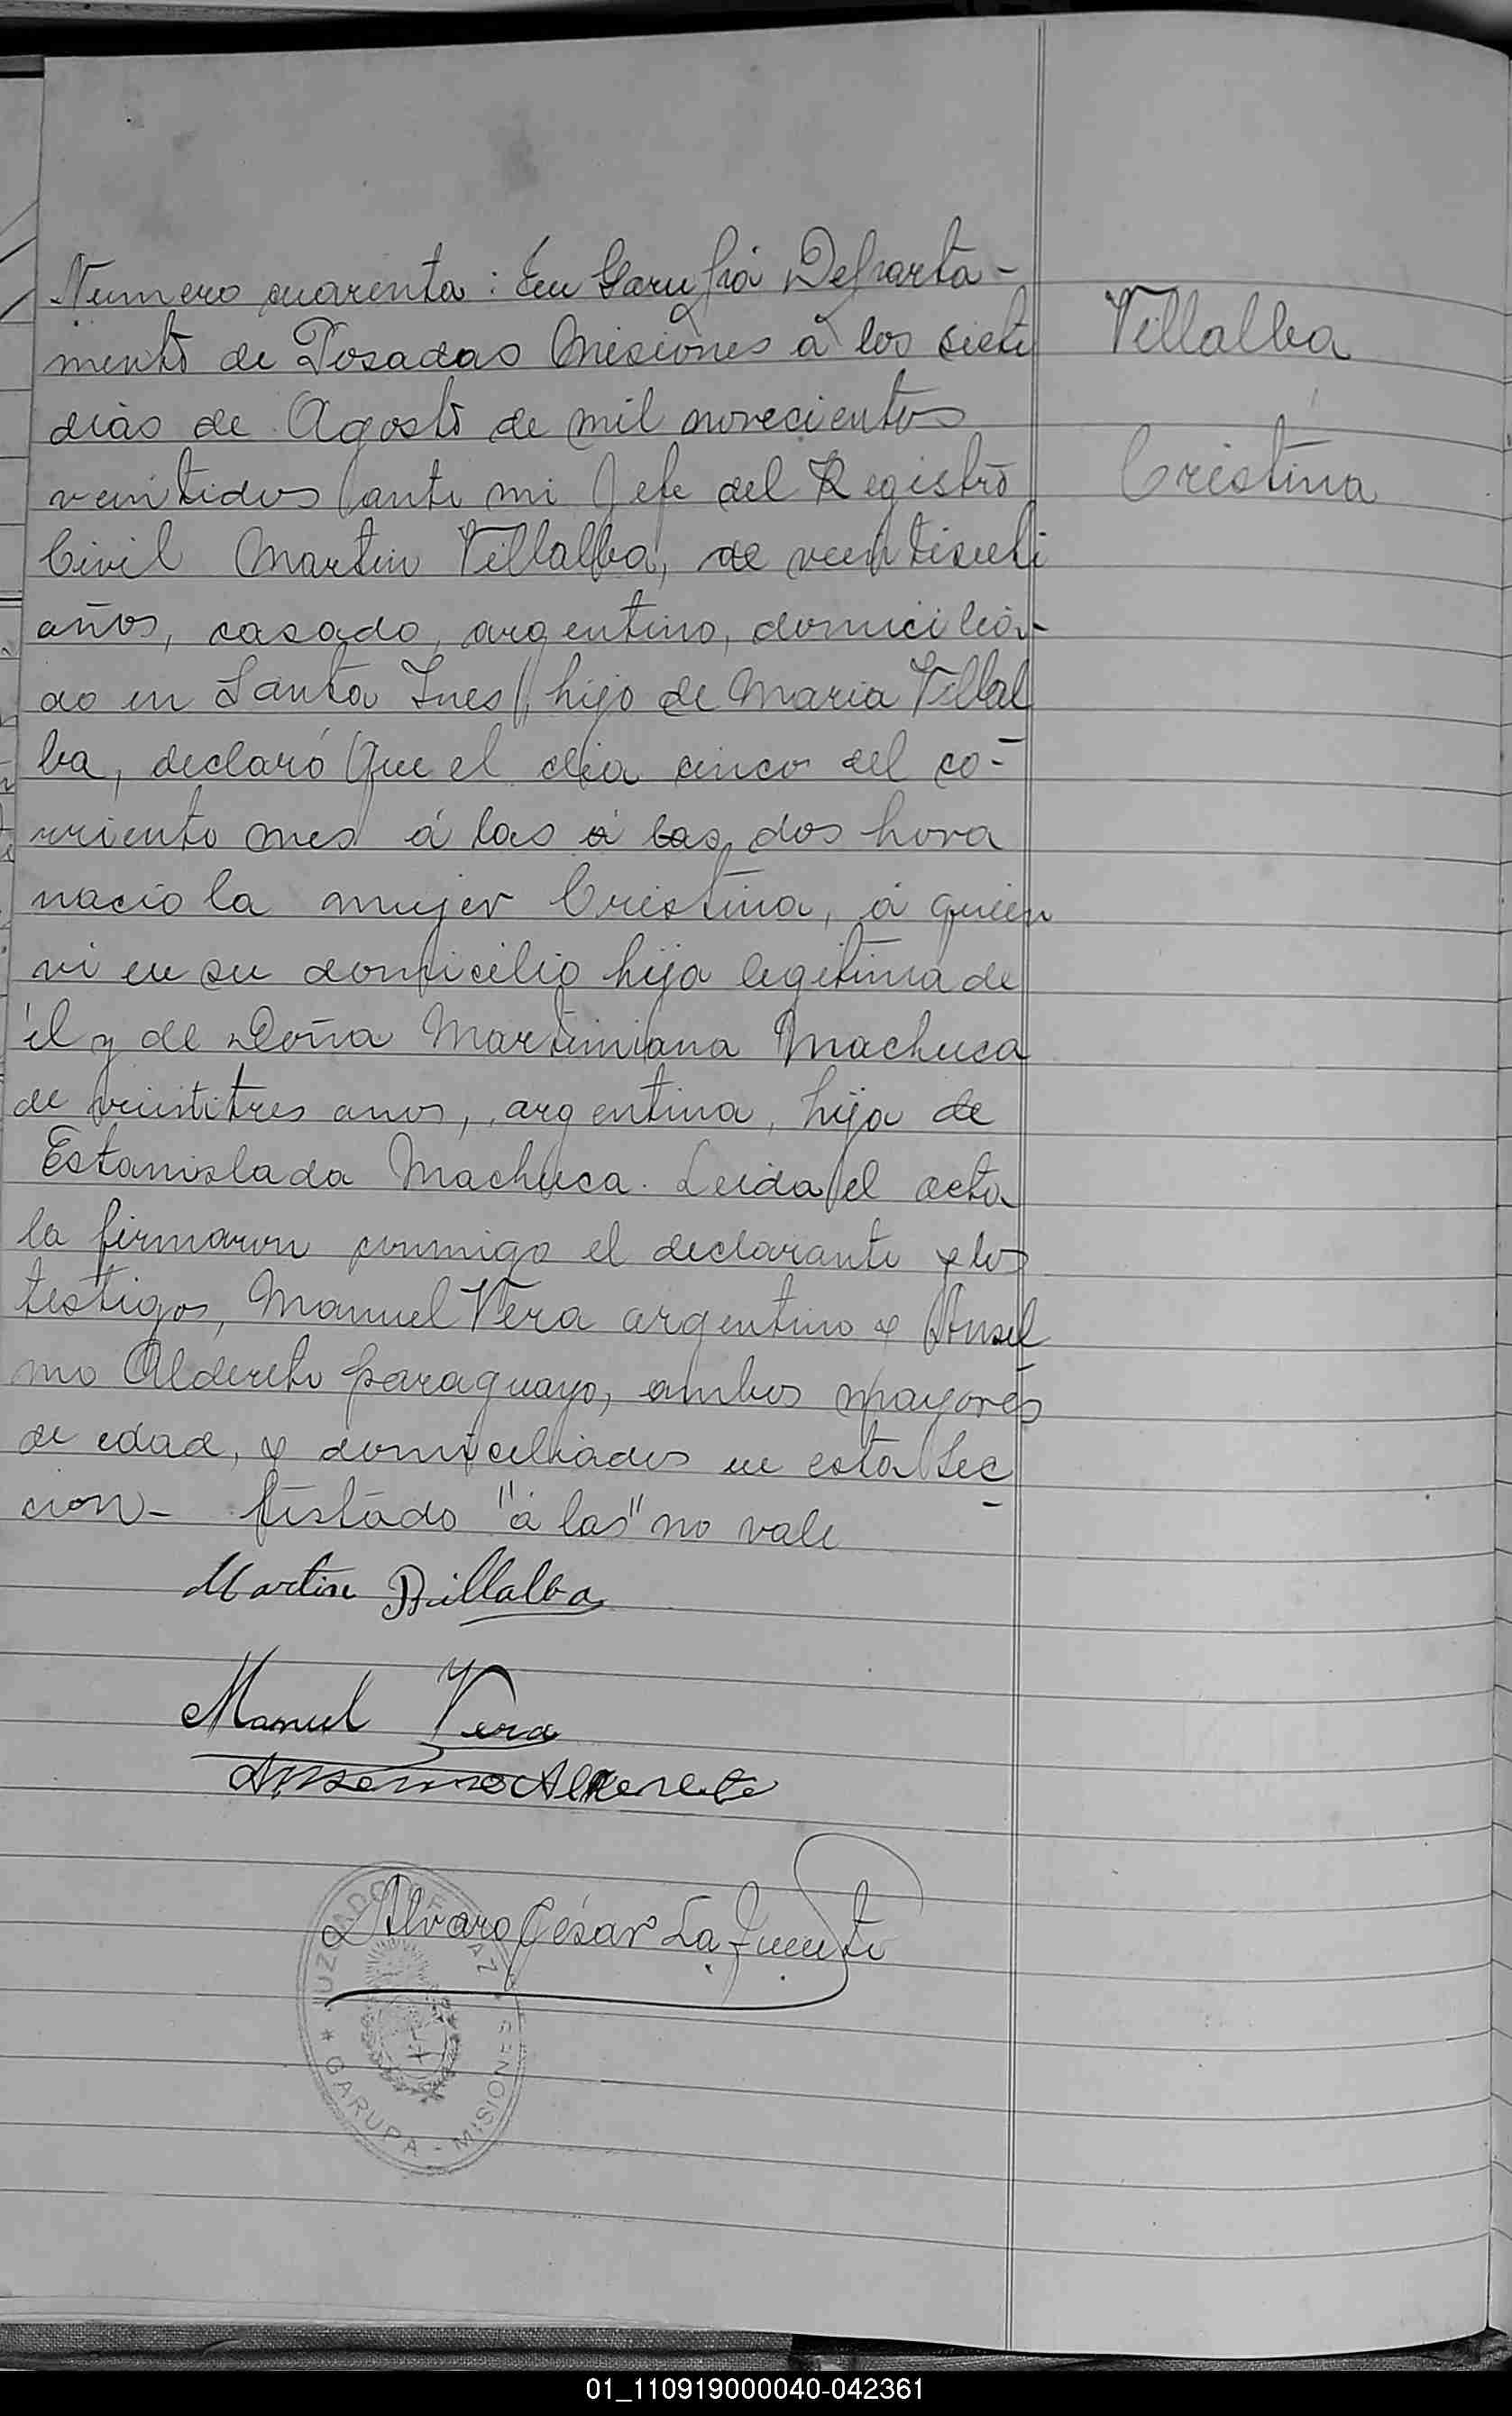 Numero cuarenta: En Garupá Departa-
mento de Posadas Misiones á los siete
dias de Agosto de mil novecientos
veintidos ante mi Jefe del Registro
Civil Martin Villalba, de veintisiete
años, casado, argentino, domicilia-
do en Santa Ines, hijo de Maria Villal
ba, declaró Que el dia cinco del co-
rriente mes á las á las dos hora
nacio la mujer Cristina, á quien
vi en su domicilio hija legitima de
él y de Doña Martiniana Machuca
de veintitres anos, argentina, hija de
Estanislada Machuca. Leida el acta
la firmaron conmigo el declarante y los
testigos, Manuel Vera argentino y Ansel
mo Alderete paraguayo, ambos mayores
de edad, y domiciliados en esta Sec
cion- testado "á las" no vale
Villalba
Cristina
Martin Villalba
Manuel Vera
Anselmo Alderete
Alvaro César La Fuente
JUZGADO DE PAZ
* GARUPA - MISIONES *
01_110919000040-042361